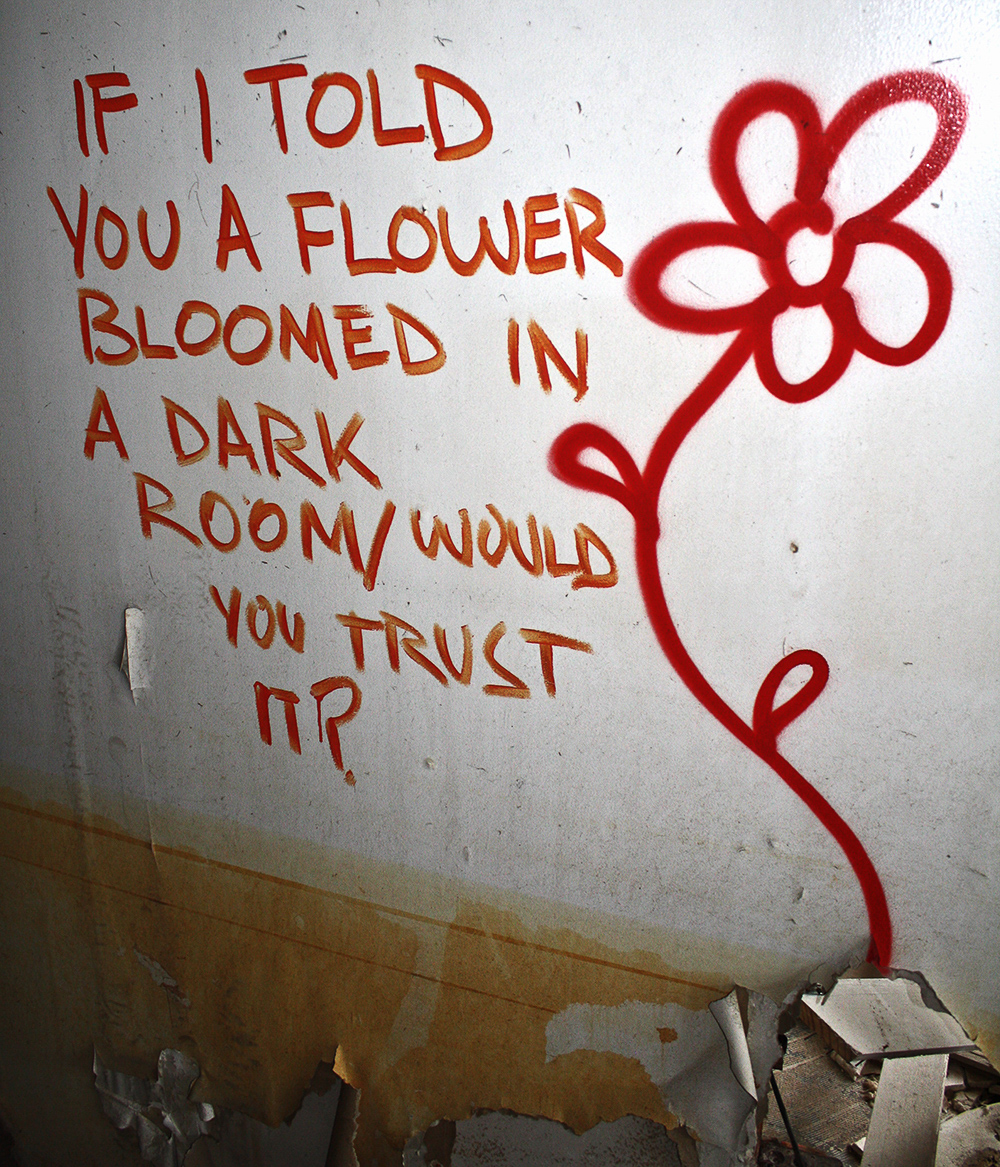 IF I TOLD
YOU A FLOWER
BLOOMED IN
A DARK
ROOM/WOULD
YOU TRUST
IT?